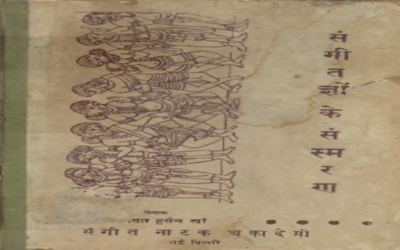 संगीतज्ञों के संस्मरण
लेखक
हुसेन खाँ
संगीत नाटक अकादेमी
नई दिल्ली